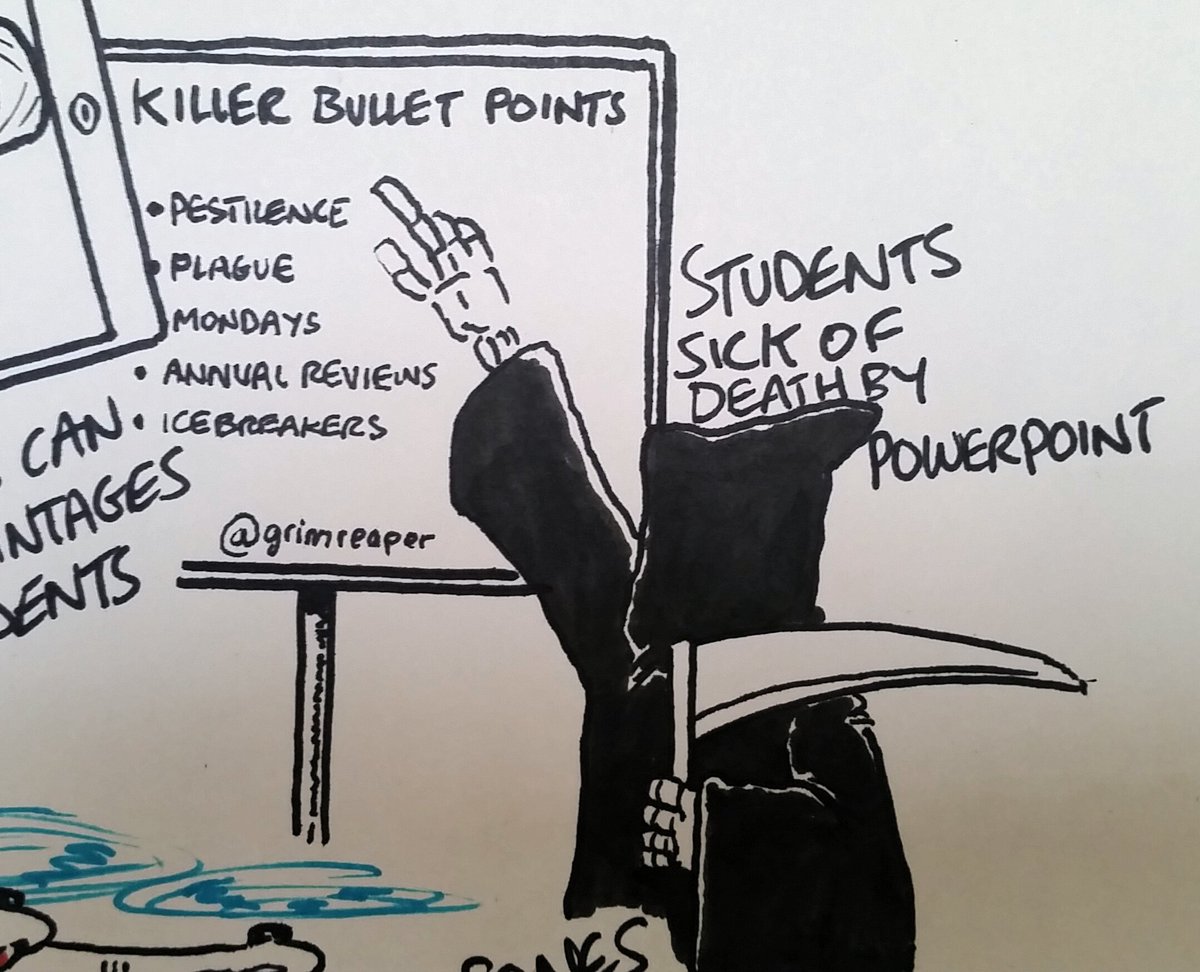 KILLER BULLET POINTS
• PESTILENCE
• PLAGUE
MONDAYS
• ANNUAL REVIEWS
• ICEBREAKERS
@grimreaper
STUDENTS
SICK OF
DEATH BY
POWERPOINT
CAN